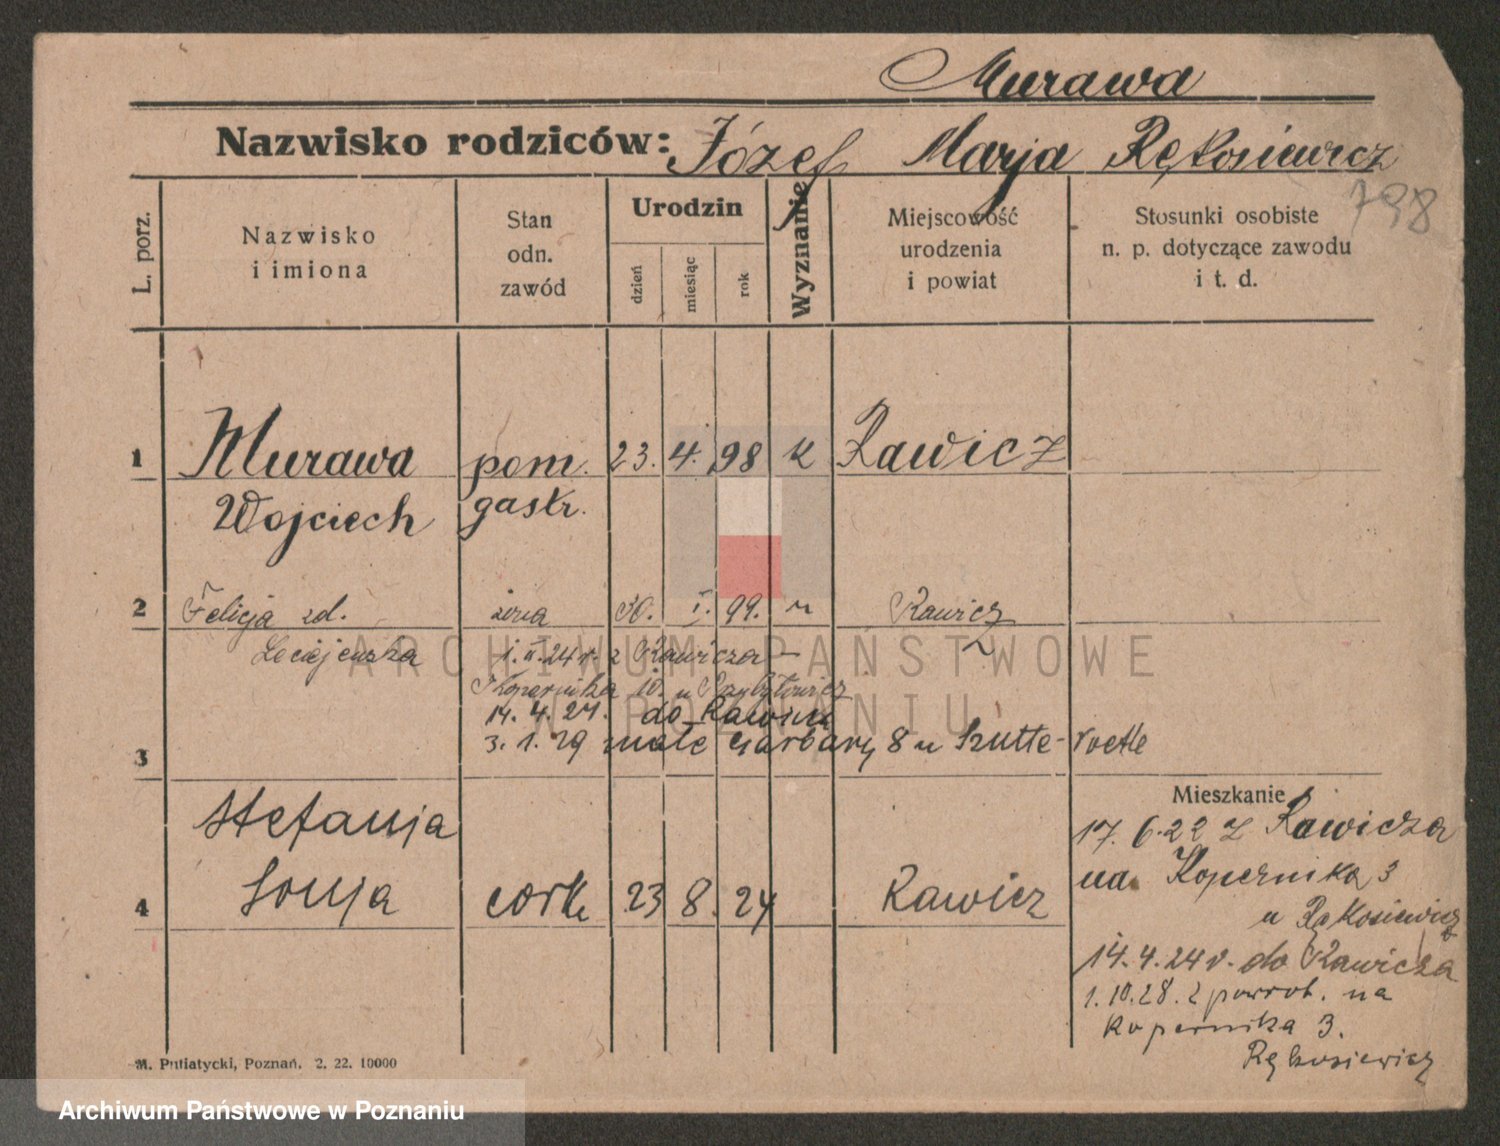 Murawa
Nazwisko rodziców: Józef Marja Rękosiewicz
798
L. porz.
Nazwisko
i imiona
Stan
odn.
zawód
Urodzin
dzień
miesiąc
rok
Wyznanie
Miejscowość
urodzenia
i powiat
Stosunki osobiste
n. p. dotyczące zawodu
i t. d.
1 Murawa pom. 23. 4. 98 k Rawicz
Wojciech gastr.
2 Felicja zd. żona 30. I. 99. Rawicz
1. II. 24 r. z Rawicza
ARCHIWUM PAŃSTWOWE
Kopernika 10. u
W POZNANIU
14. 4. 24. do Rawicza
3. 1. 29 małe Garbary 8 u
3
Mieszkanie
Stefanja
17. 6. 22 z Rawicza
na Kopernika 3
4 Sonja córk 23 8. 24 Rawicz
u Rękosiewicz
14. 4. 24 r. do Rawicza
1. 10. 28. z powrot. na
Kopernika 3.
Rękosiewicz
M. Putiatycki, Poznań. 2. 22. 10000
Archiwum Państwowe w Poznaniu